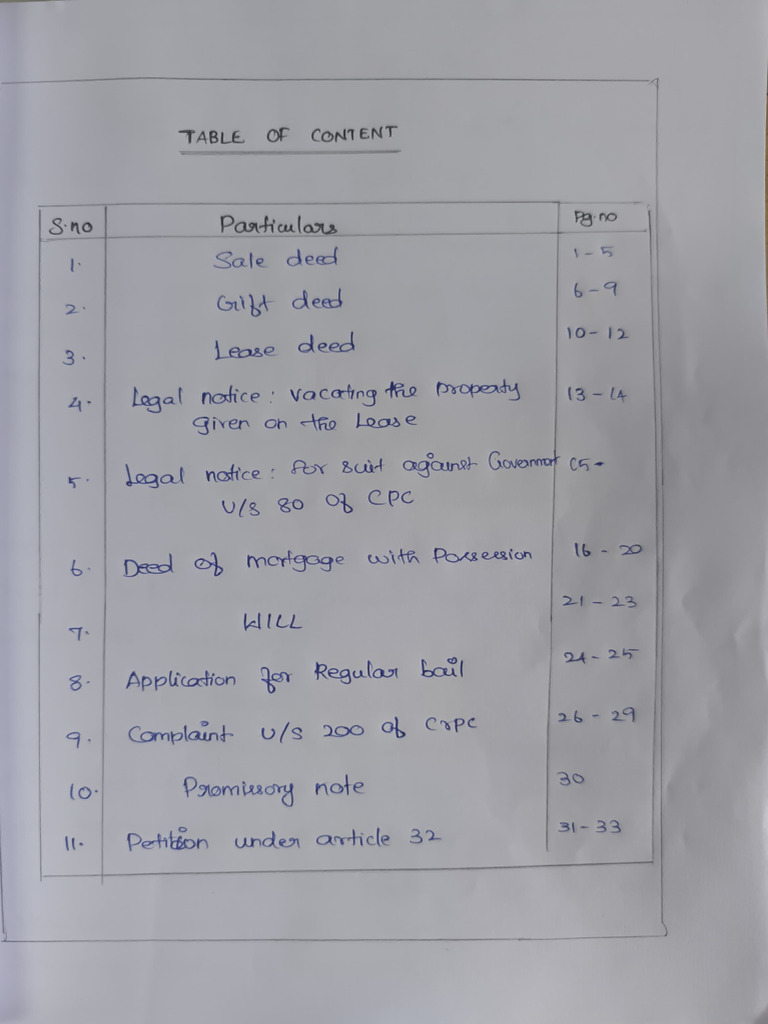 TABLE OF CONTENT
S.no Particulars Pg.no
1. Sale deed 1 - 5
2. Grift deed 6 - 9
3. Lease deed 10 - 12
4. Legal notice : vacating the property 13 - 14
given on the Lease
5. Legal notice : for suit against Government 15 -
U/S 80 of CPC
6. Deed of mortgage with Possession 16 - 20
7. WILL 21 - 23
8. Application for Regular bail 24 - 25
9. Complaint U/S 200 of CrPC 26 - 29
10. Promissory note 30
11. Petition under article 32 31 - 33